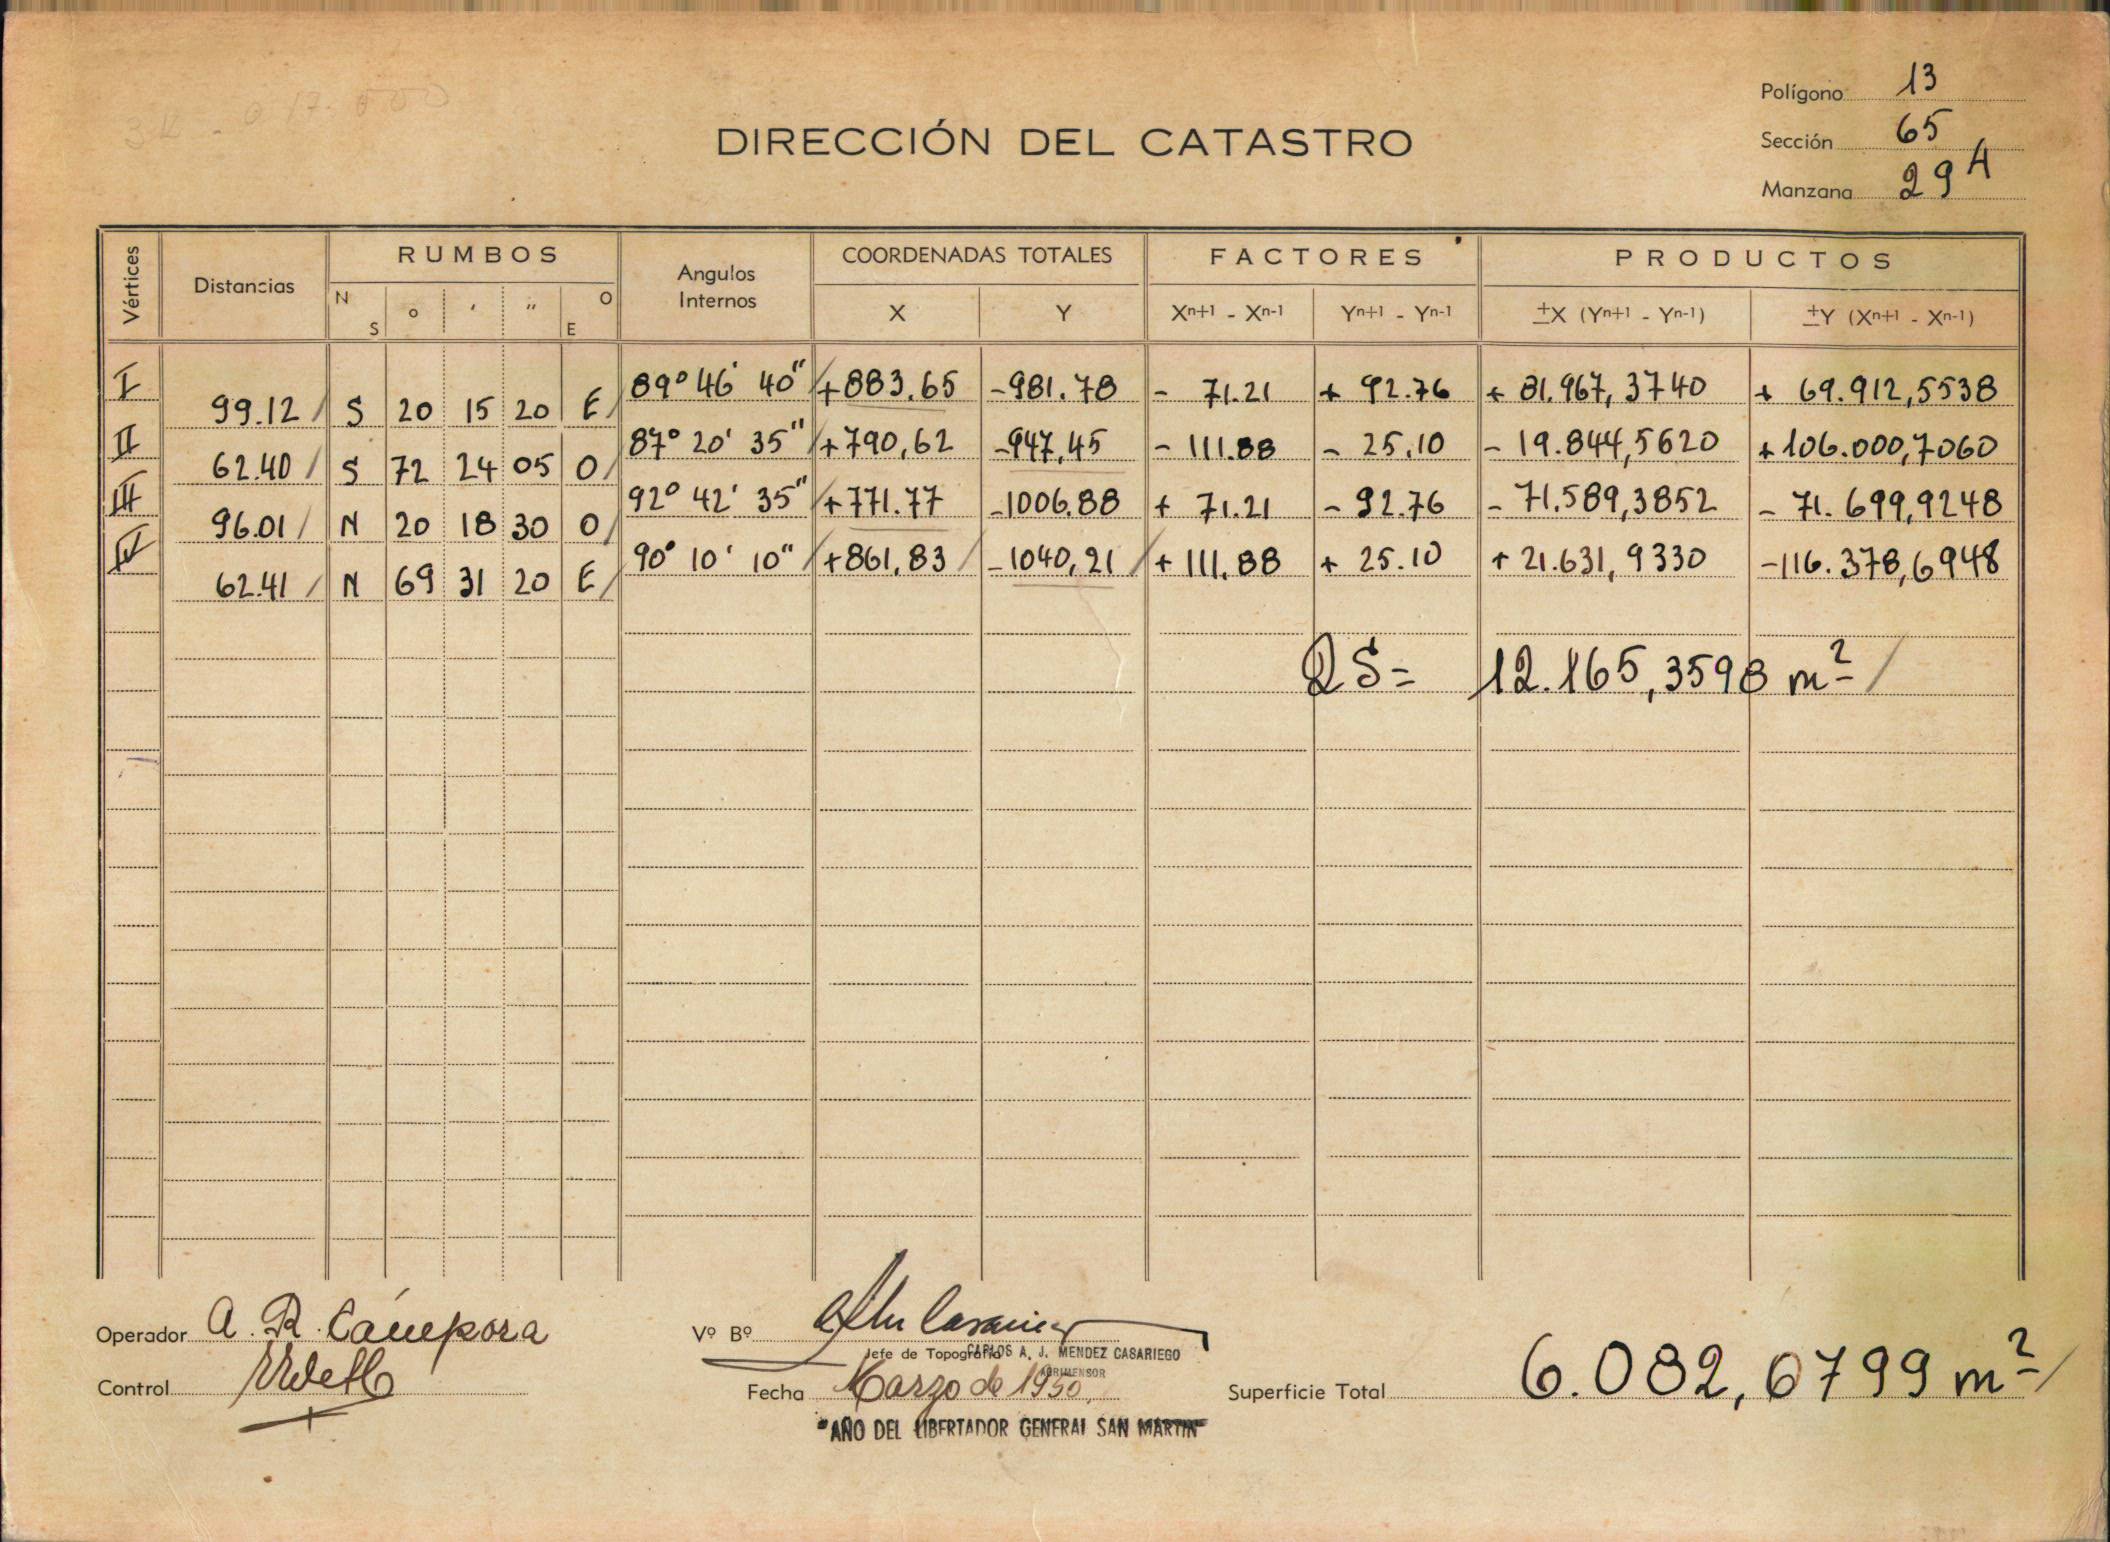 Polígono 13
DIRECCIÓN DEL CATASTRO
Sección 65
Manzana 29 A
Vértices Distancias RUMBOS Angulos Internos COORDENADAS TOTALES FACTORES PRODUCTOS
N S ° ' " O E X Y Xⁿ⁺¹ - Xⁿ⁻¹ Yⁿ⁺¹ - Yⁿ⁻¹ ±X (Yⁿ⁺¹ - Yⁿ⁻¹) ±Y (Xⁿ⁺¹ - Xⁿ⁻¹)
I 89° 46' 40" +883.65 -981.78 - 71.21 + 92.76 + 81.967,3740 + 69.912,5538
99.12 S 20 15 20 E
II 87° 20' 35" +790,62 -947,45 - 111.88 - 25.10 - 19.844,5620 +106.000,7060
62.40 S 72 24 05 O
III 92° 42' 35" +771.77 -1006.88 + 71.21 - 92.76 - 71.589,3852 - 71.699,9248
96.01 N 20 18 30 O
IV 90° 10' 10" +861,83 -1040,21 + 111.88 + 25.10 + 21.631,9330 -116.378,6948
62.41 N 69 31 20 E
2S= 12.165,3598 m²
Operador A. R. Cámpora
Vº Bº
Jefe de Topografía CARLOS A. J. MENDEZ CASARIEGO
AGRIMENSOR
Control
Fecha Marzo de 1950
Superficie Total 6.082,6799 m²
"AÑO DEL LIBERTADOR GENERAL SAN MARTIN"